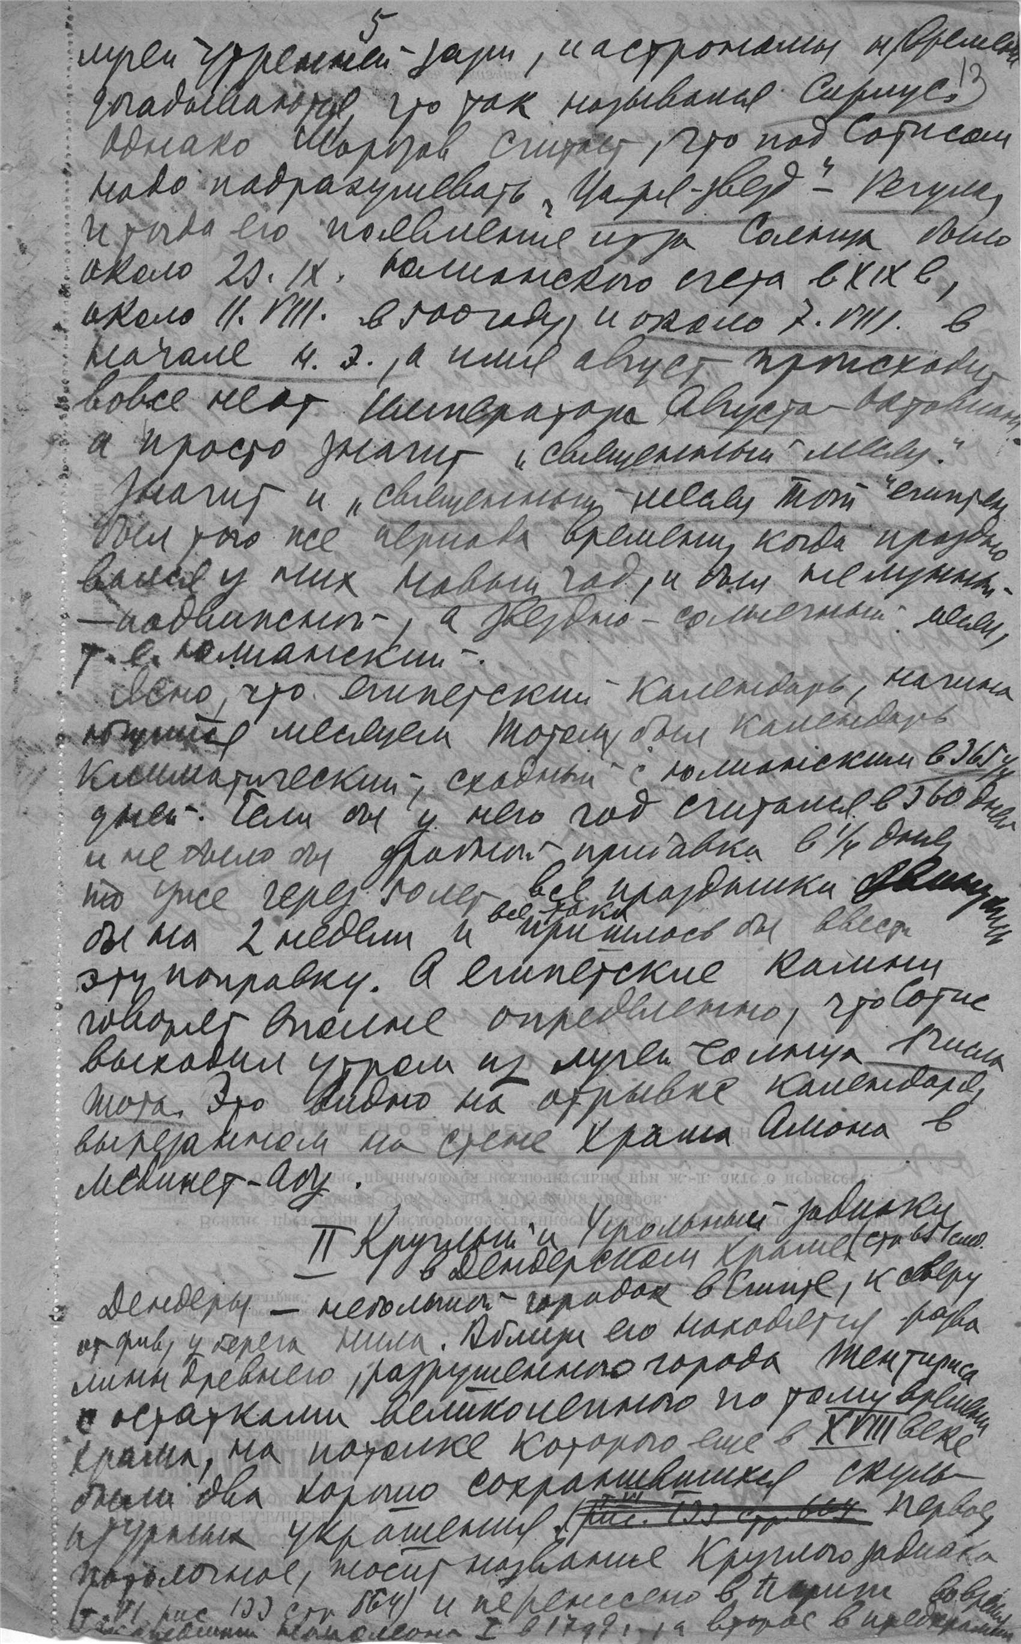 5
лучей утренней зари, и астрономы
догадываются, что так назывался Сириус. 13
Однако Морозов считает, что под Сотисом
надо подразумевать "Царя-звезд" – Регула,
и тогда его появление из за Солнца было
около 23. IX. юлианского счета в XIX в,
около 11. VIII. в 500 году, и около 7. VIII. в
начале н. э., а имя август происходит
вовсе не от Императора Августа-Октавиана
а просто значит "священный месяц".
Значит и "священный месяц Тот" египтян
был того же периода времени, когда праздно
вался у них новый год, и был не лунный-
– подвижной, а звездно-солнечный месяц,
т. е. юлианский.
Ясно, что египетский календарь, начина
ющийся месяцем Тотом, был календарь
климатический, сходный с юлианским в 365 1/4
дней. Если бы у него год считался в 360 дней
и не было бы дробной прибавки в 1/4 дня,
то уже через лет все праздники
бы на 2 недели и все-таки пришлось бы ввести
эту поправку. А египетские камни
говорят вполне определенно, что Сотис
выходил утром из лучей Солнца 1 числа
Тота. Это видно на отрывке календаря,
вырезанном на стене храма Амона в
Мединет-Абу.
II Круглый и Угольный зодиаки
в Дендерском храме (стр 651
Дендеры – небольшой городок в Египте, к северу
от Фив, у берега Нила. Вблизи его находятся разва
лины древнего, разрушенного города Тентириса
с остатками великолепного по тому времени
храма, на потолке которого еще в XVIII веке
были два хорошо сохранившихся скуль-
птурных украшения. (рис. 133 стр 664 Первое,
потолочное, носит название Круглого зодиака
(т. VI рис 133 стр 664) и перенесено в Париж во время
Наполеона I в 179 г., а второе в